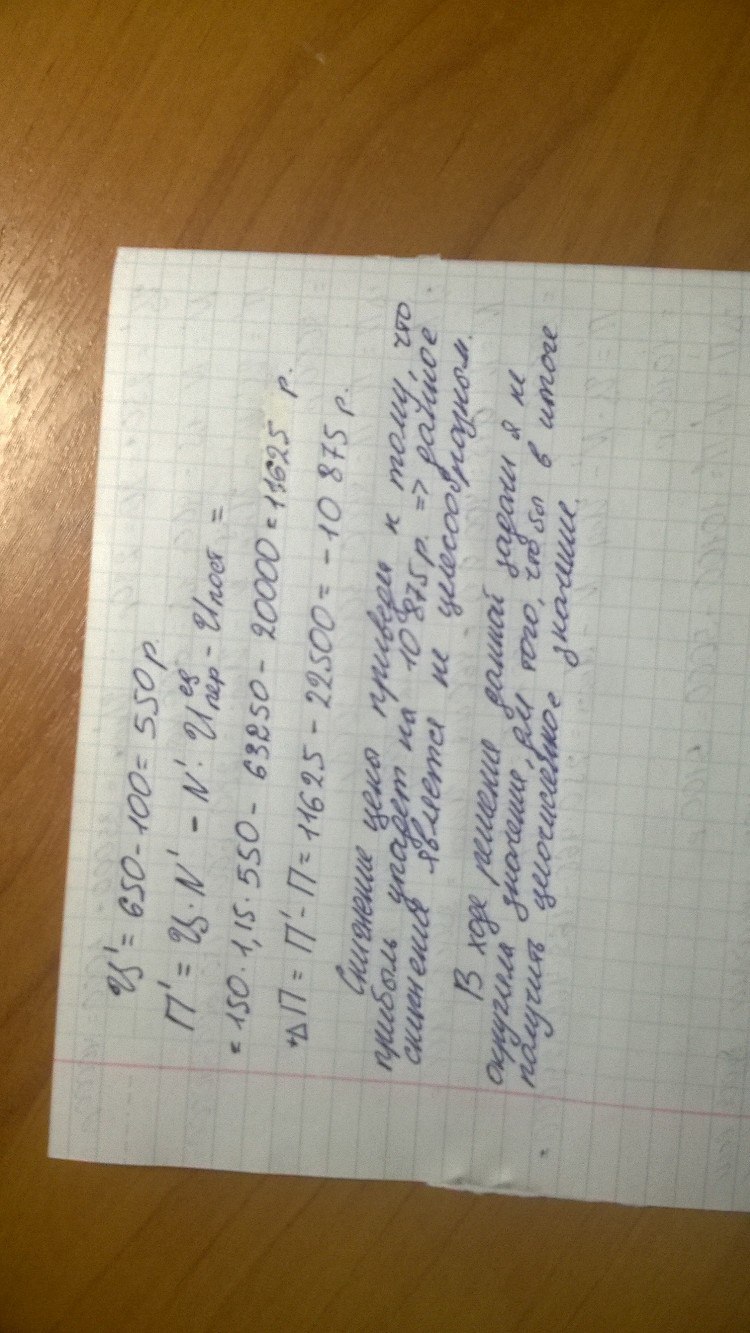 Ц' = 650 - 100 = 550 р.
П' = Ц · N' - N' · И ед пер - И пост =
= 150 · 1,15 · 550 - 63250 - 20000 = 11625 р.
+Δ П = П' - П = 11625 - 22500 = - 10 875 р.
Снижение цены приведёт к тому, что
прибыль упадет на 10 875 р. => данное
снижение является не целесообразным.
В ходе решения данной задачи я не
округляла значение, для того, чтобы в итоге
получить целочисленное значение.